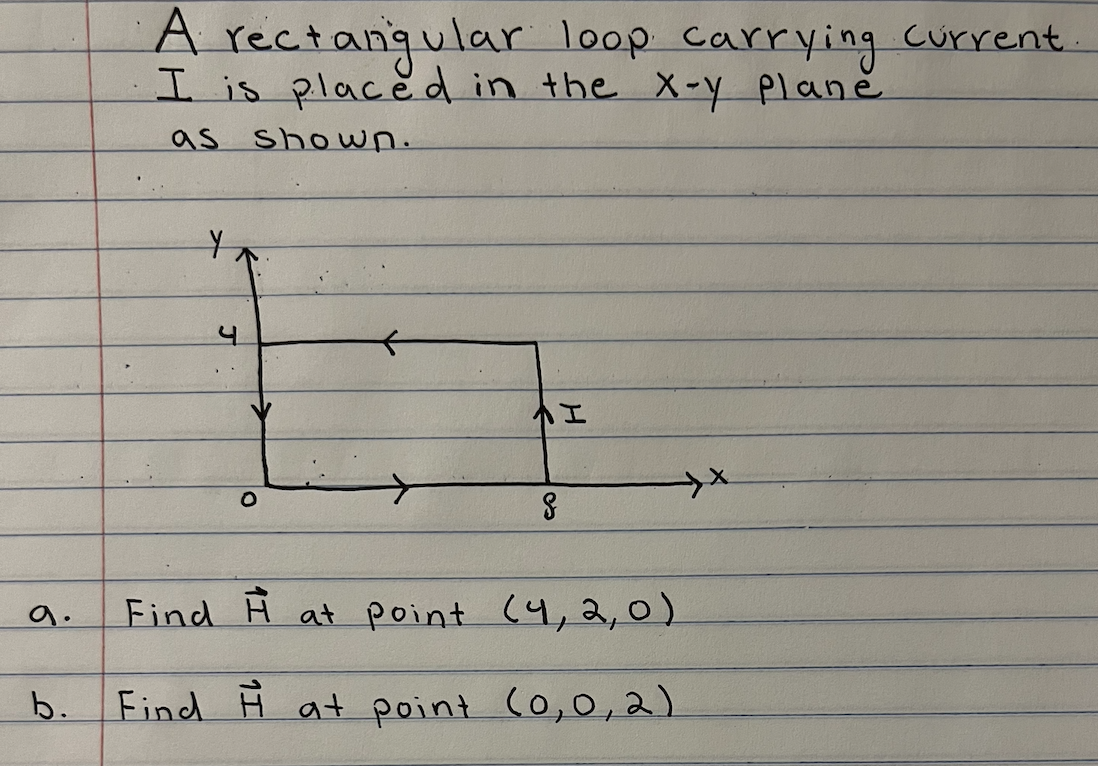 A rectangular loop carrying current
I is placed in the x-y plane
as shown.
y
4
I
x
0
8
a. Find H⃗ at point (4,2,0)
b. Find H⃗ at point (0,0,2)